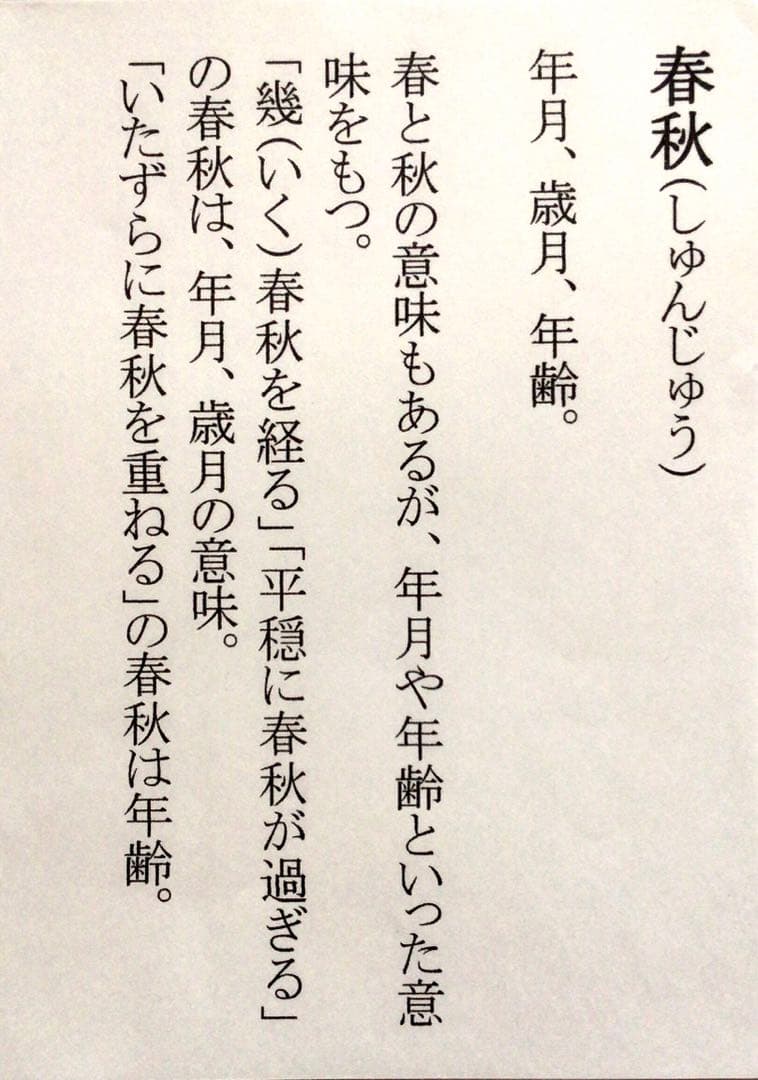 春秋(しゅんじゅう)
年月、歳月、年齢。
春と秋の意味もあるが、年月や年齢といった意
味をもつ。
「幾(いく)春秋を経る」「平穏に春秋が過ぎる」
の春秋は、年月、歳月の意味。
「いたずらに春秋を重ねる」の春秋は年齢。